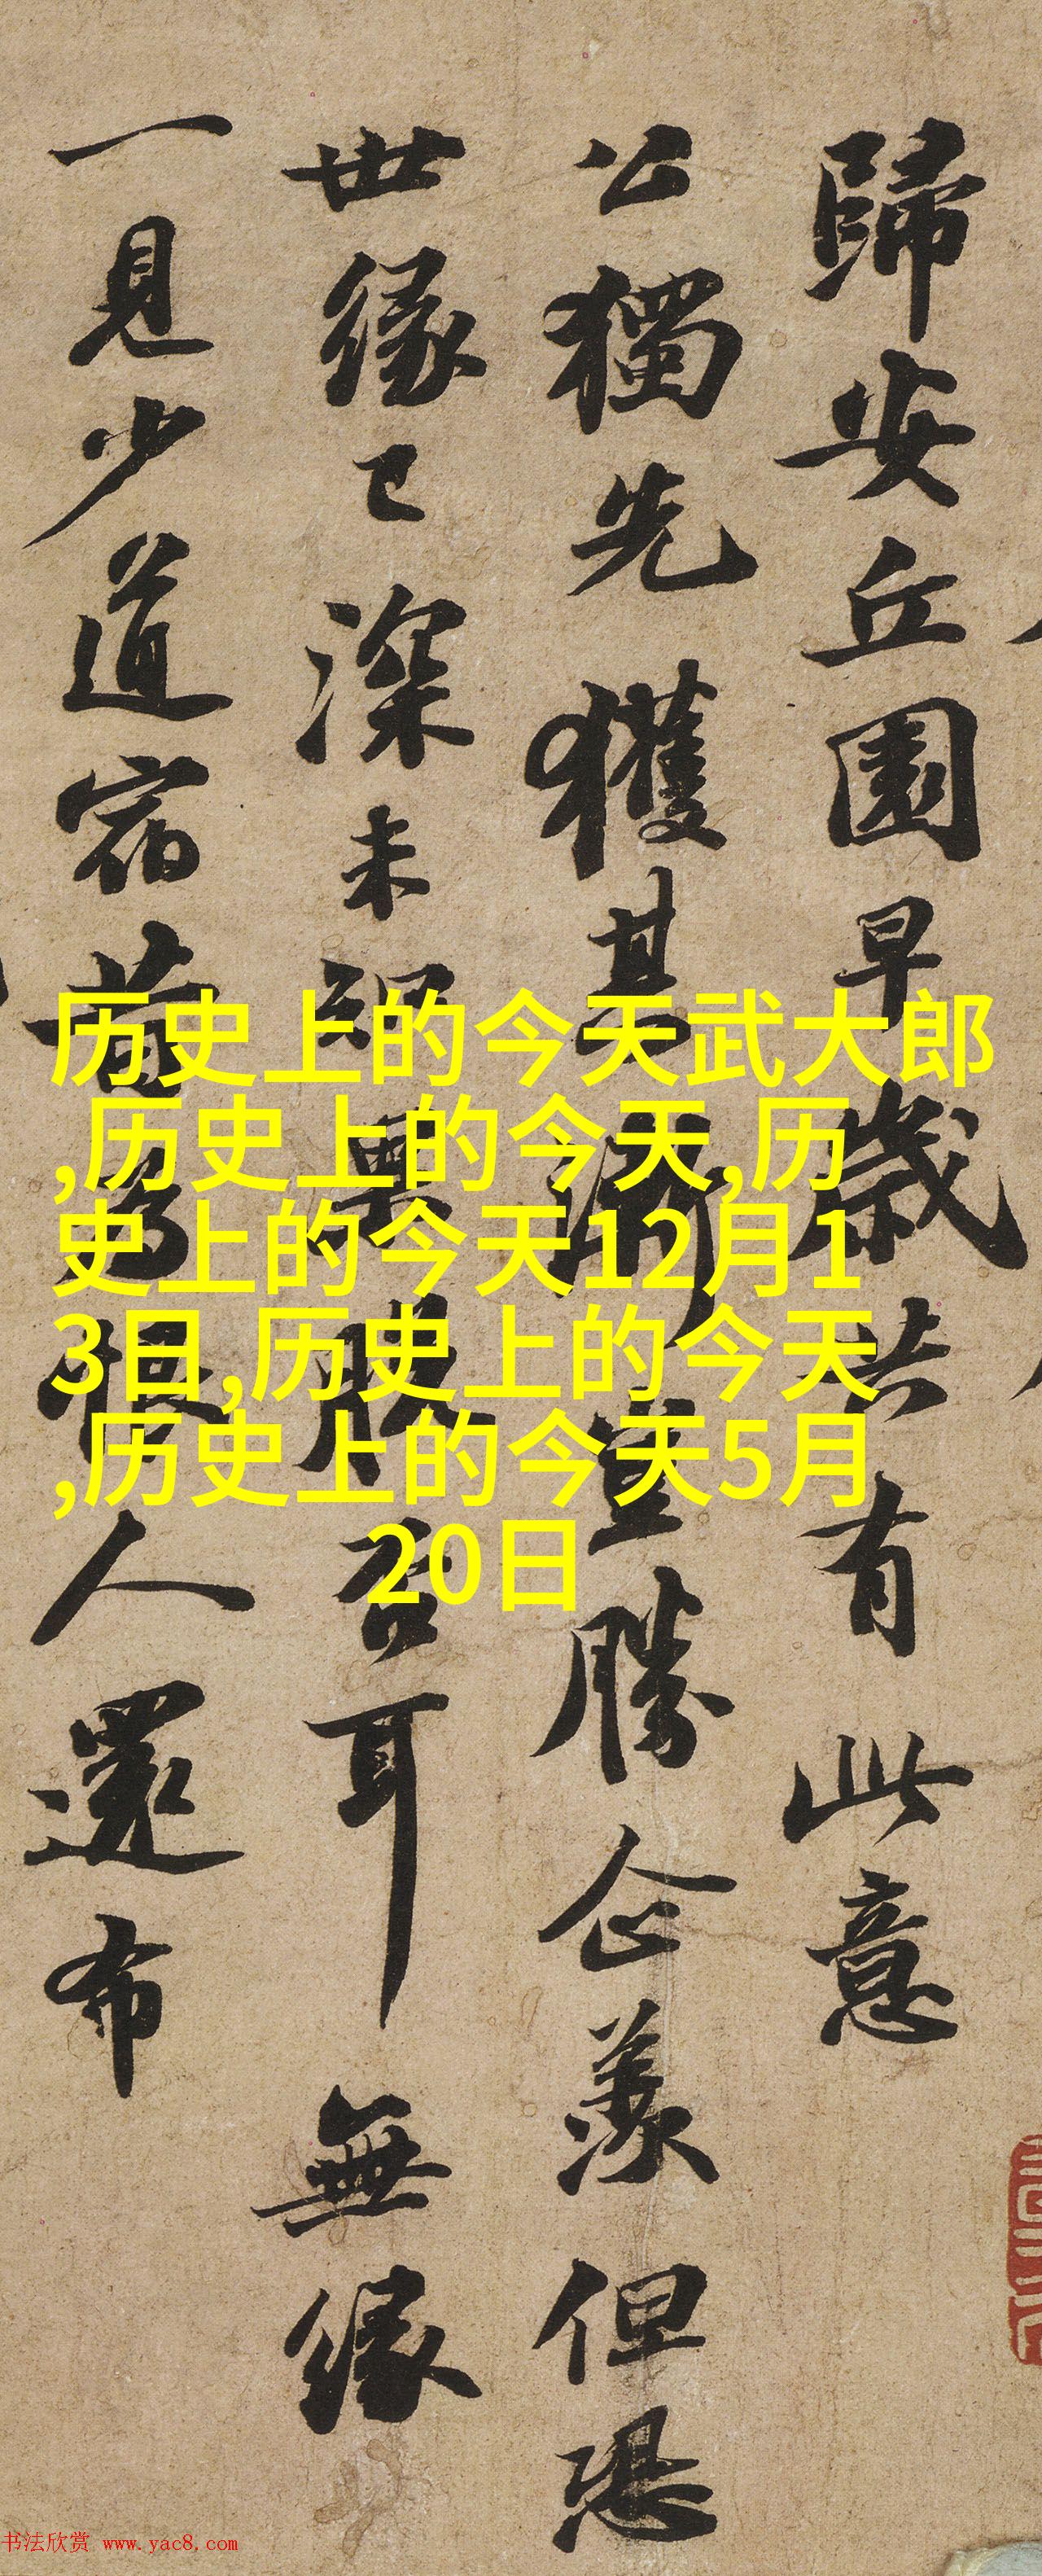 歸安丘園早歲共有此意
公獨先獲其漸豈勝企羨但恐
世緣已深未知果脫否耳無緣
一見少道宿昔為恨人還布
历史上的今天武大郎
,历史上的今天,历
史上的今天12月1
3日,历史上的今天
,历史上的今天5月
20日
书法欣赏 www.yac8.com